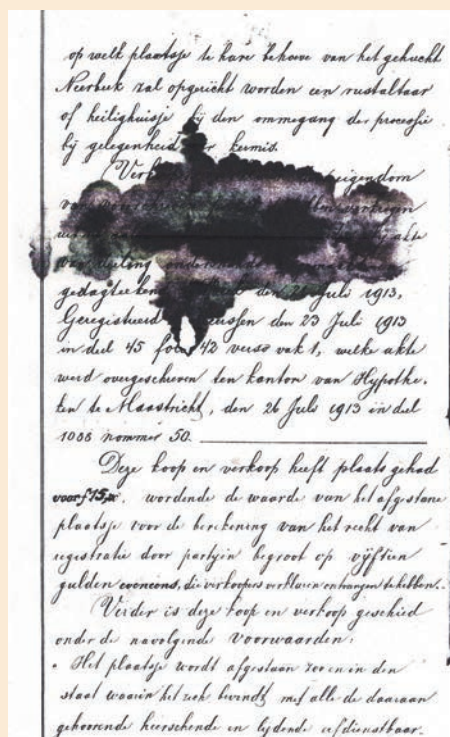 op welk plaatsje te hare behoeve van het gehucht
Neerbeek zal opgericht worden een rustaltaar
of heilighuisje bij den ommegang der processie
bij gelegenheid der kermis.
eigendom
akte
gedagteekend den 21 Juli 1913,
Geregistreerd den 23 Juli 1913
in deel 45 folio 42 verso vak 1, welke akte
werd overgeschreven ten kantore van Hypothe-
ken te Maastricht, den 26 Juli 1913 in deel
1086 nommer 50.
Deze koop en verkoop heeft plaats gehad
voor f 15,=. wordende de waarde van het afgestane
plaatsje voor de berekening van het recht van
registratie door partijen begroot op vijftien
gulden eveneens, die verkoopers verklaren ontvangen te hebben.
Verder is deze koop en verkoop geschied
onder de navolgende voorwaarden:
Het plaatsje wordt afgestaan zoo en in den
staat waarin het zich bevindt met alle de daaraan
gehoorende heerschende en lijdende erfdienstbaar-